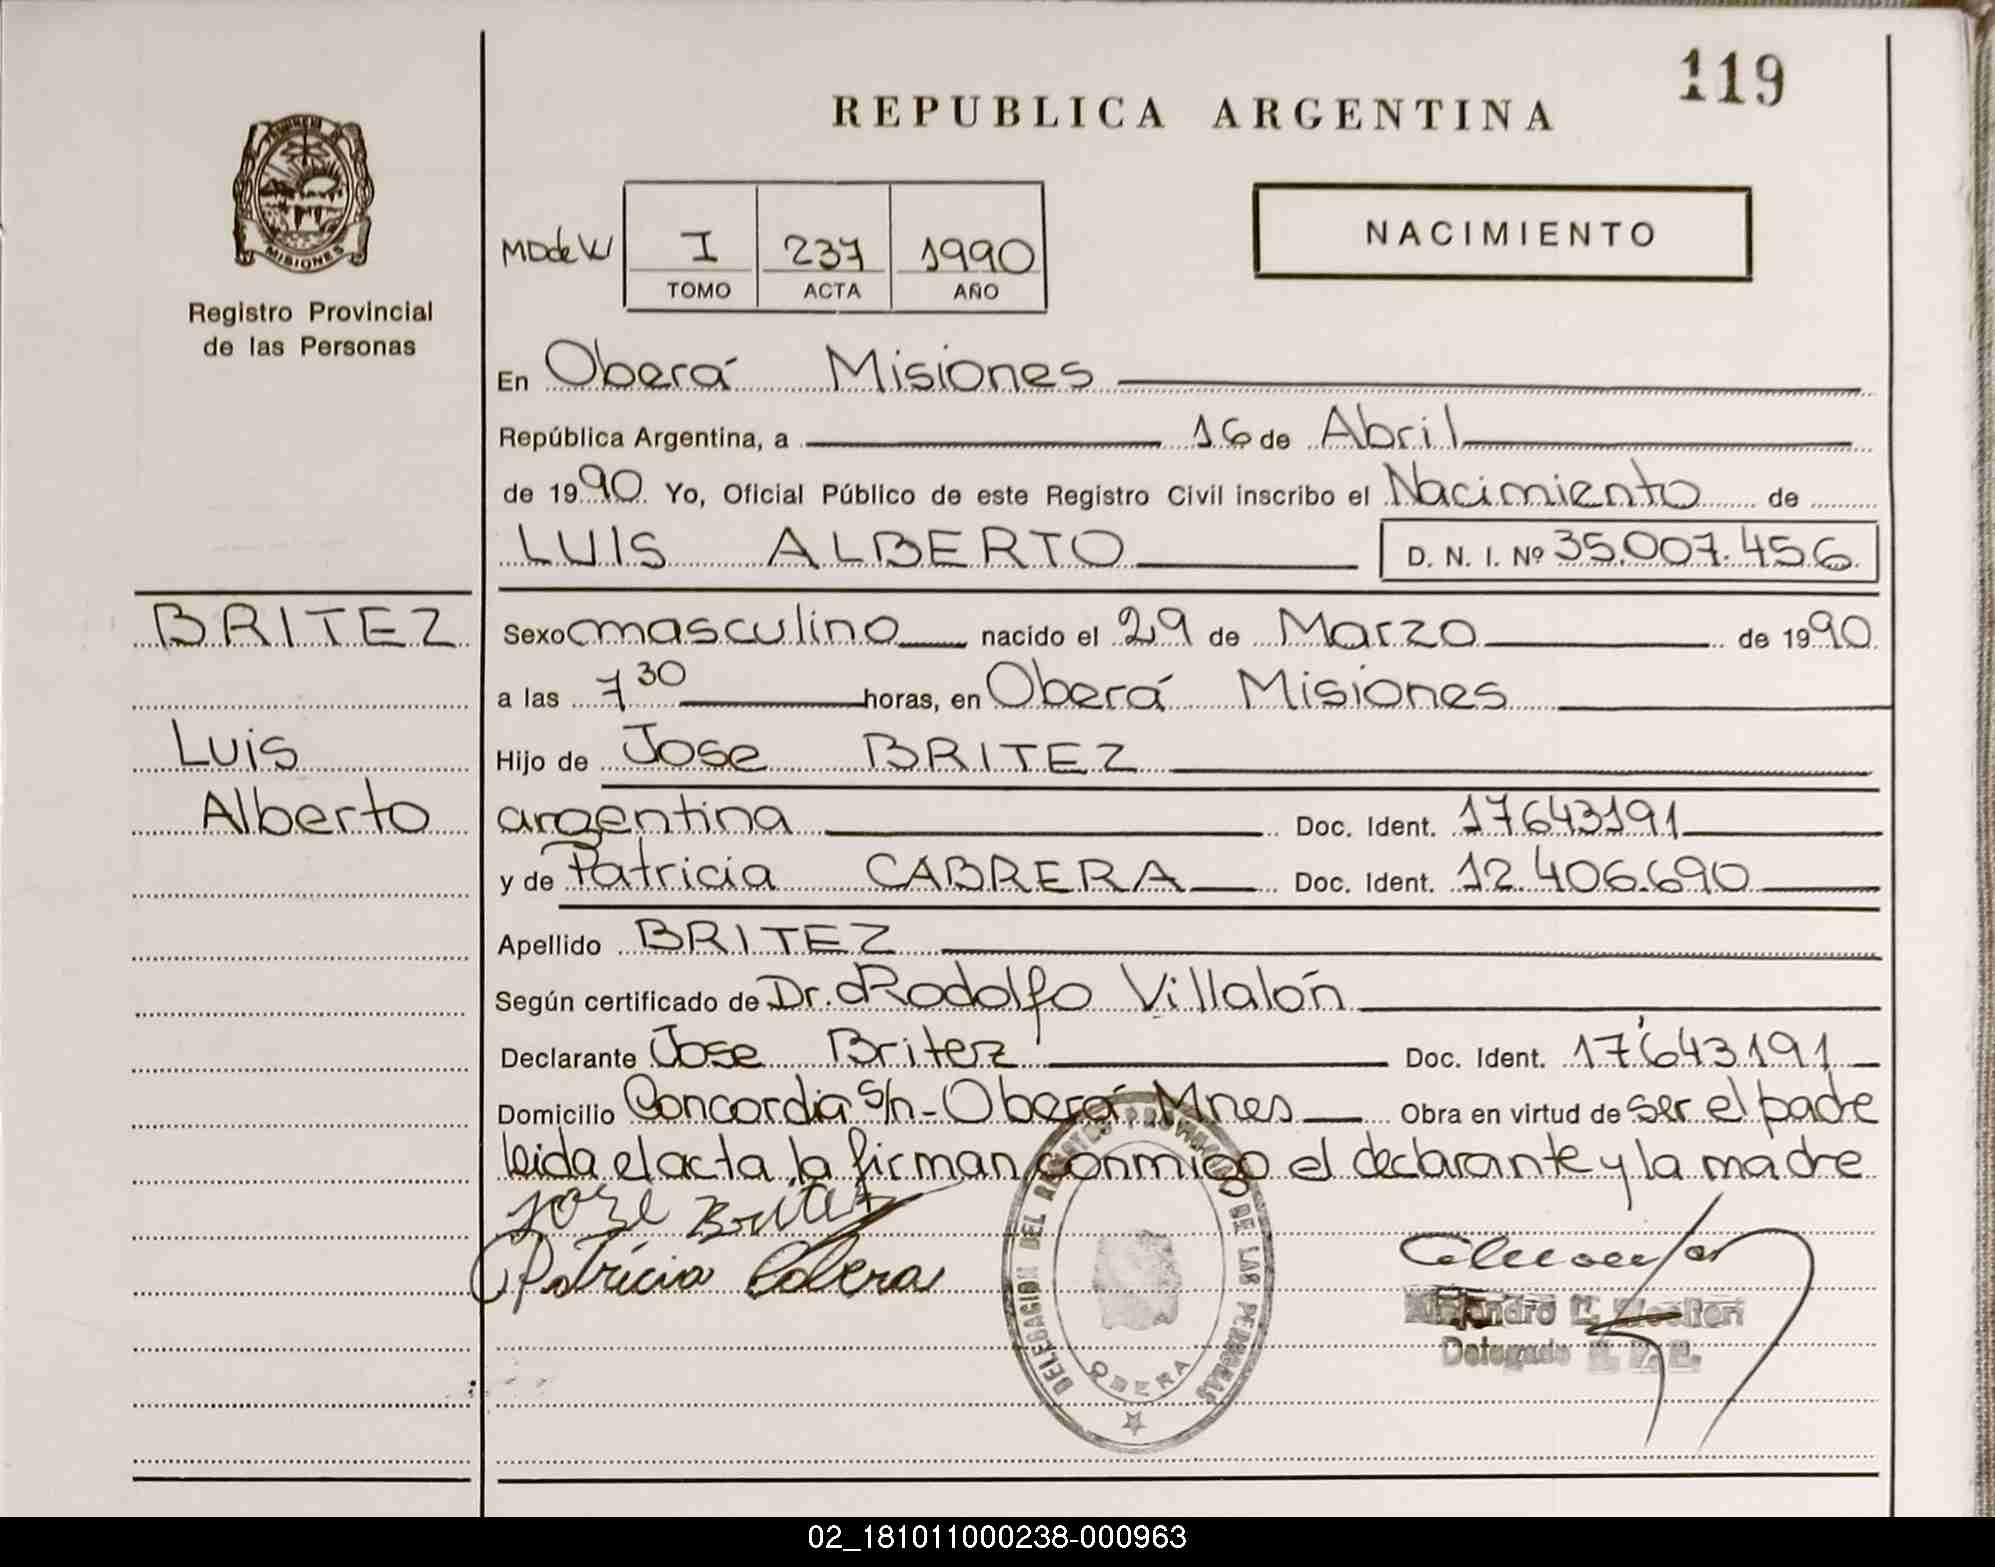 119
REPUBLICA ARGENTINA
MISIONES
Registro Provincial
de las Personas
I 237 1990
TOMO ACTA AÑO
NACIMIENTO
En Oberá Misiones
República Argentina, a 16 de Abril
de 1990 Yo, Oficial Público de este Registro Civil inscribo el Nacimiento de
LUIS ALBERTO D. N. I. Nº 35.007.456
BRITEZ
Luis
Alberto
Sexo masculino nacido el 29 de Marzo de 1990
a las 7 30 horas, en Oberá Misiones
Hijo de Jose BRITEZ
argentina Doc. Ident. 17643191
y de Patricia CABRERA Doc. Ident. 12.406.690
Apellido BRITEZ
Según certificado de Dr. Rodolfo Villalón
Declarante Jose Britez Doc. Ident. 17'643191
Domicilio Concordia s/n - Oberá Mnes Obra en virtud de ser el padre
leida el acta la firman conmigo el declarante y la madre
Jose Britez
Patricia Cabrera
DELEGACION DEL REGISTRO PROVINCIAL DE LAS PERSONAS
OBERA
Alejandro
Delegado
02_181011000238-000963